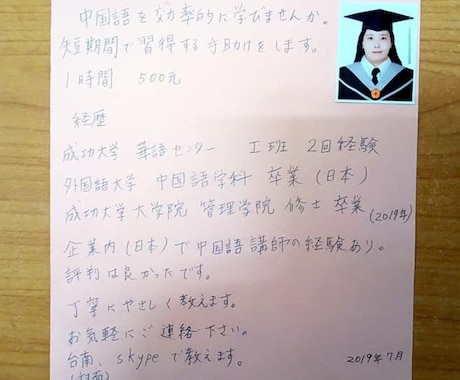 中国語を効率的に学びませんか。
短期間で習得する手助けをします。
1時間 500元
経歴
成功大学 華語センター I班 2回経験
外国語大学 中国語学科 卒業(日本)
成功大学大学院 管理学院 修士 卒業(2019年)
企業内(日本)で中国語講師の経験あり。
評判は良かったです。
丁寧にやさしく教えます。
お気軽にご連絡下さい。
台南、skypeで教えます。
2019年7月